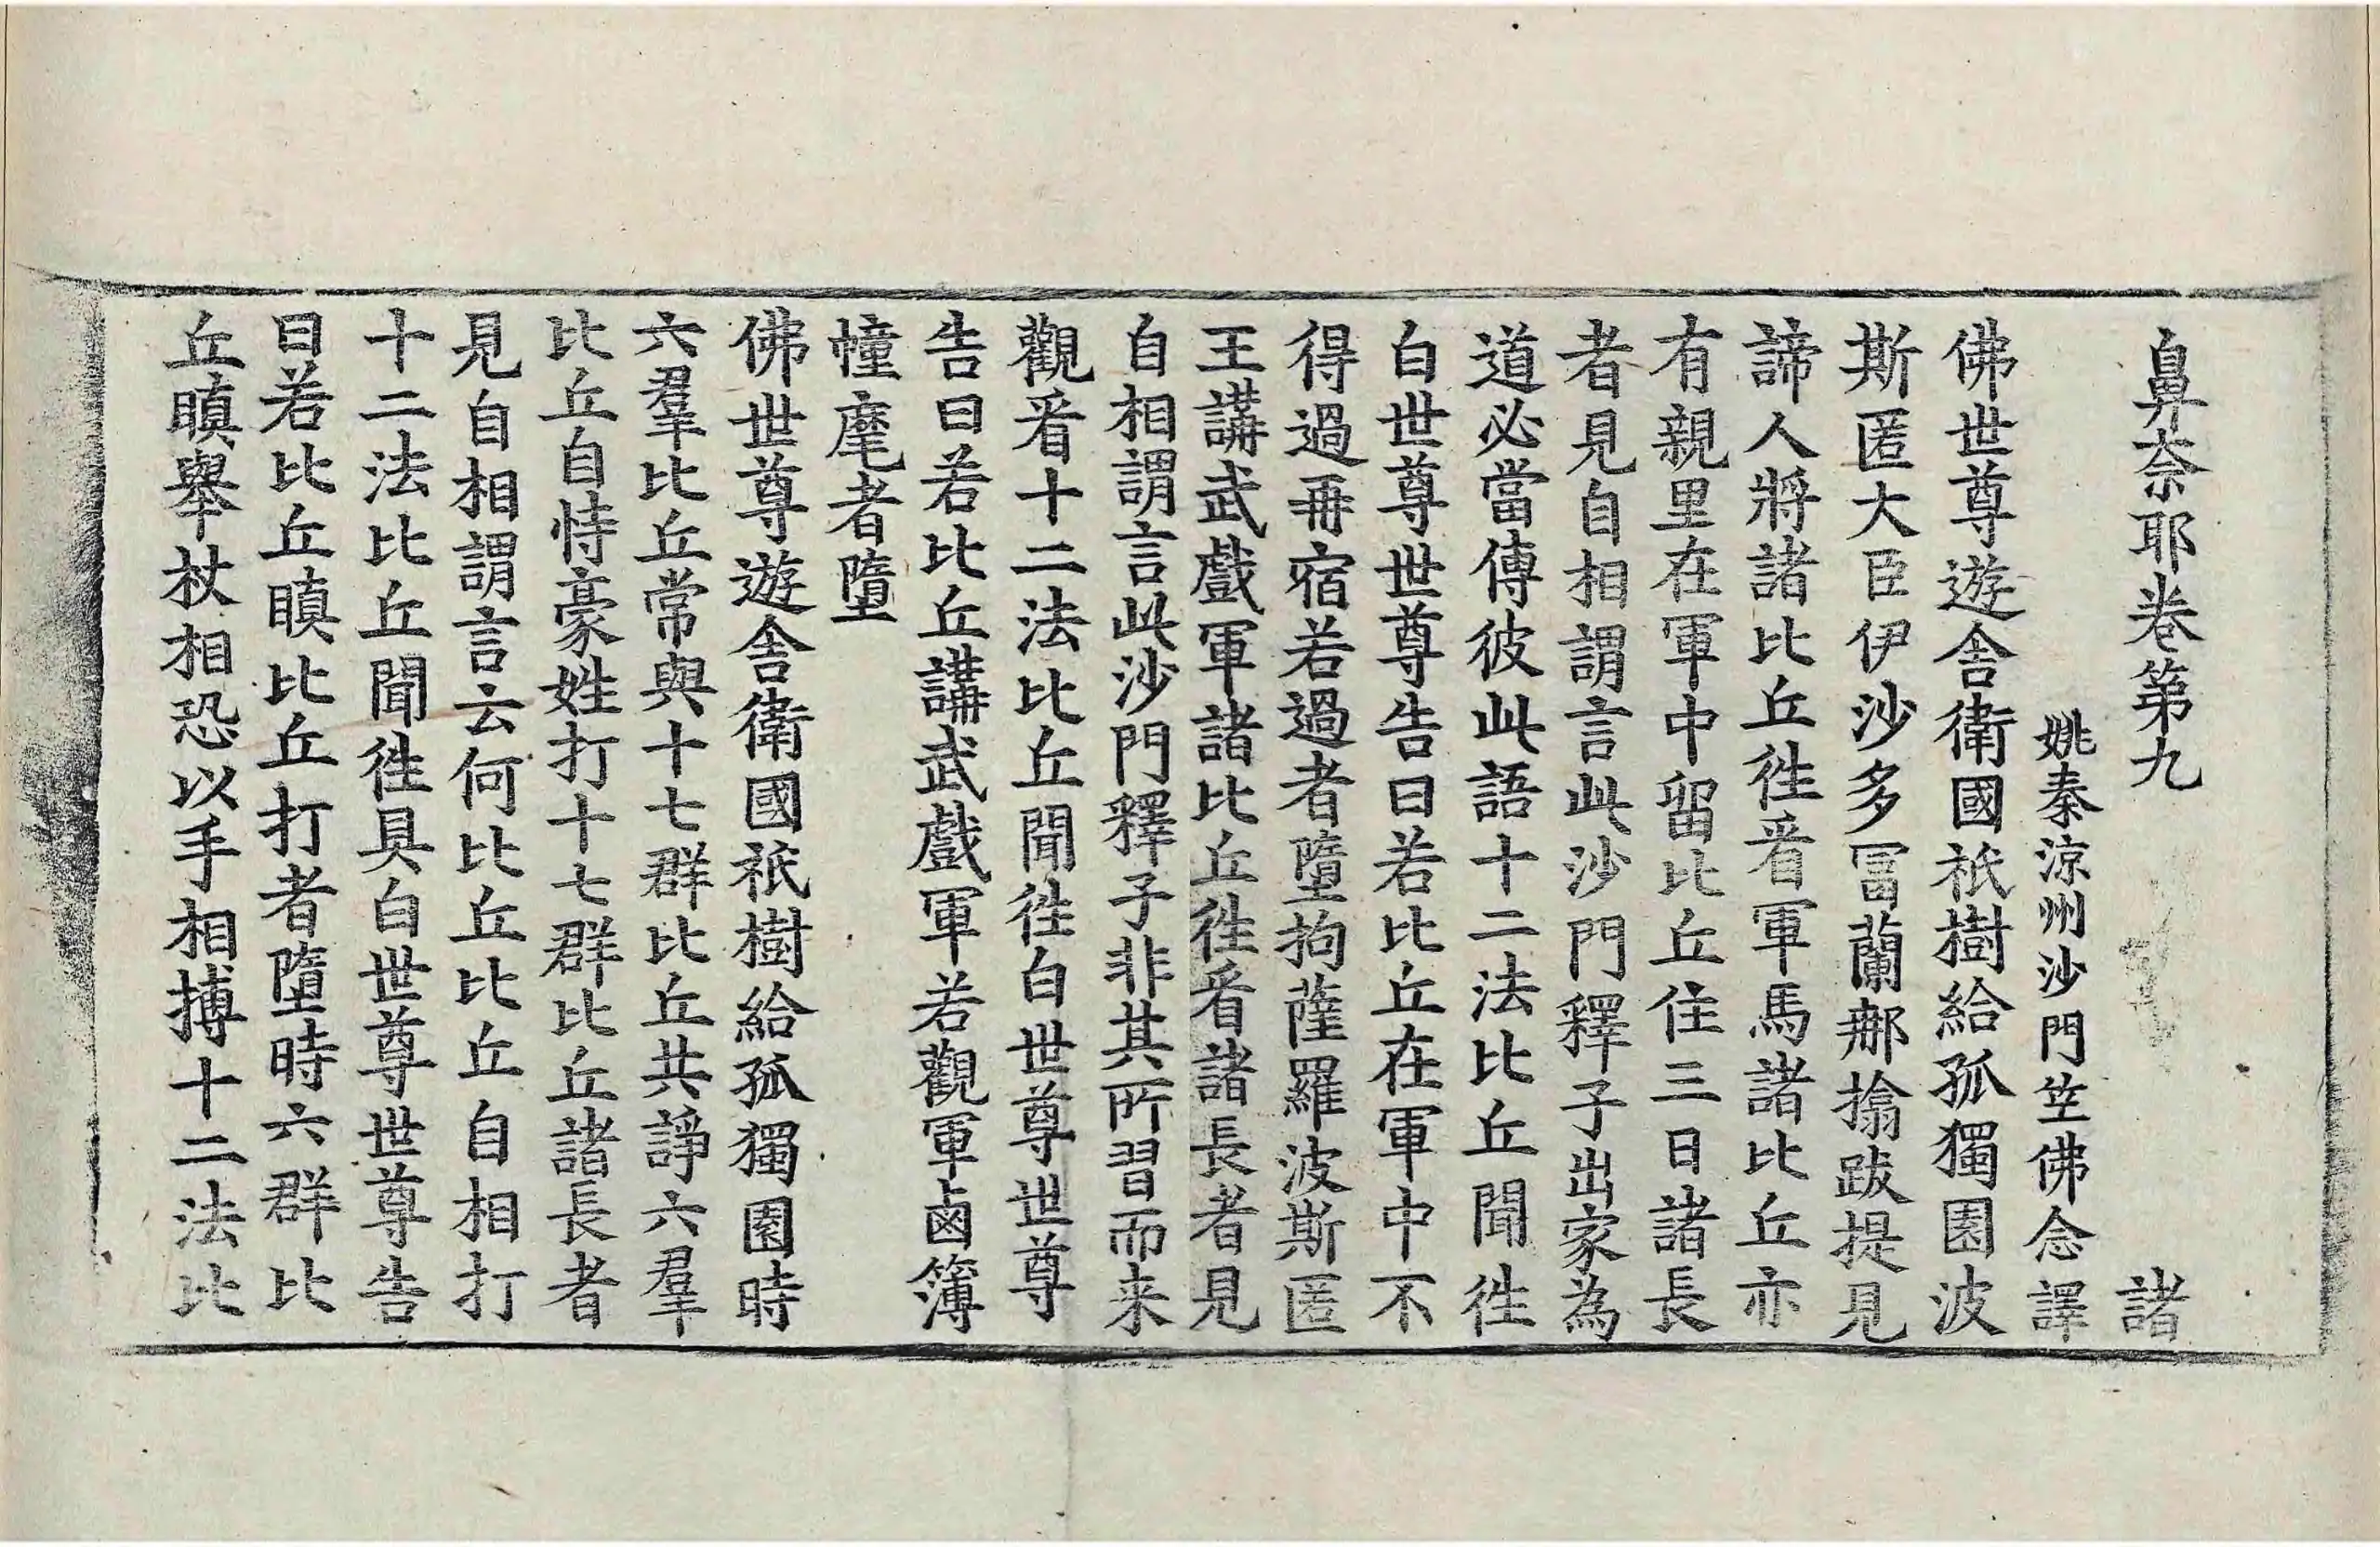 鼻奈耶卷第九 諸
姚秦涼州沙門笁佛念譯
佛世尊遊舎衛國祇樹給孤獨園波
斯匿大臣伊沙多冨蘭𨚗搚跋提見
諦人將諸比丘徃㸔軍馬諸比丘亦
有親里在軍中留比丘住三日諸長
者見自相謂言此沙門釋子出家為
道必當傳彼此語十二法比丘聞徃
白世尊世尊告曰若比丘在軍中不
得過再宿若過者墮拘薩羅波斯匿
王講武戲軍諸比丘徃㸔諸長者見
自相謂言此沙門釋子非其所習而来
觀㸔十二法比丘聞徃白世尊世尊
告曰若比丘講武戲軍若觀軍鹵簿
幢麾者墮
佛世尊遊舎衛國祇樹給孤獨園時
六羣比丘常與十七群比丘共諍六羣
比丘自恃豪姓打十七群比丘諸長者
見自相謂言云何比丘比丘自相打
十二法比丘聞徃具白世尊世尊告
曰若比丘瞋比丘打者墮時六群比
丘瞋舉杖相恐以手相搏十二法比